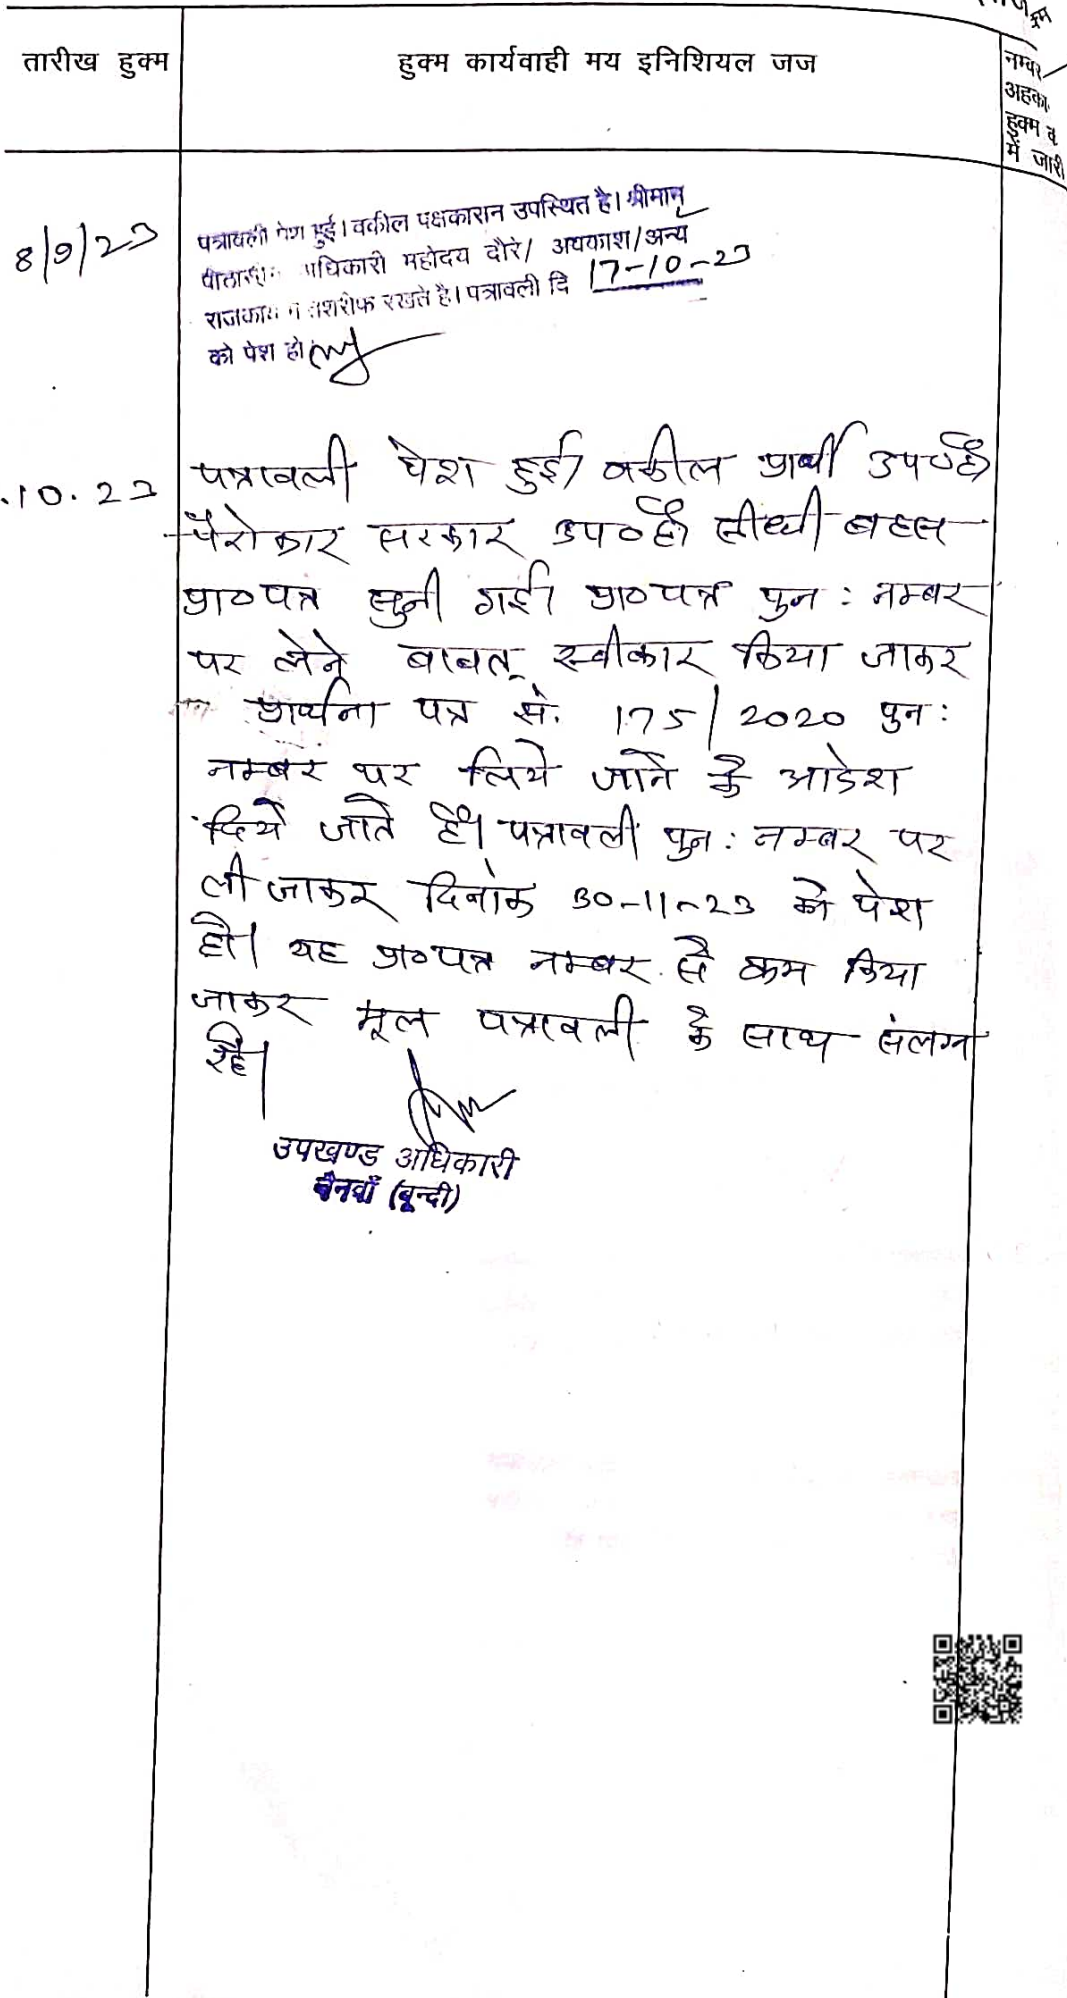 तारीख हुक्म
हुक्म कार्यवाही मय इनिशियल जज
नम्बर
हुक्म
में जारी
8/9/23
पत्रावली पेश हुई। वकील पक्षकारान उपस्थित है। श्रीमान्
महोदय दौरे/ अवकाश/अन्य
रखते है। पत्रावली दि 17-10-23
को पेश हो
.10.23
पत्रावली पेश हुई। वकील प्रार्थी उप०है।
पैरोकार सरकार उप०है। सीधी बहस
प्रा०पत्र सुनी गई। प्रा०पत्र पुन: नम्बर
पर लेने बाबत् स्वीकार किया जाकर
प्रार्थना पत्र सं. 175/2020 पुन:
नम्बर पर लिये जाने के आदेश
दिये जाते हैं। पत्रावली पुन: नम्बर पर
ली जाकर दिनांक 30-11-23 को पेश
हो। यह प्रा०पत्र नम्बर से कम किया
जाकर मूल पत्रावली के साथ संलग्न
रहे।
उपखण्ड अधिकारी
नैनवाँ (बून्दी)